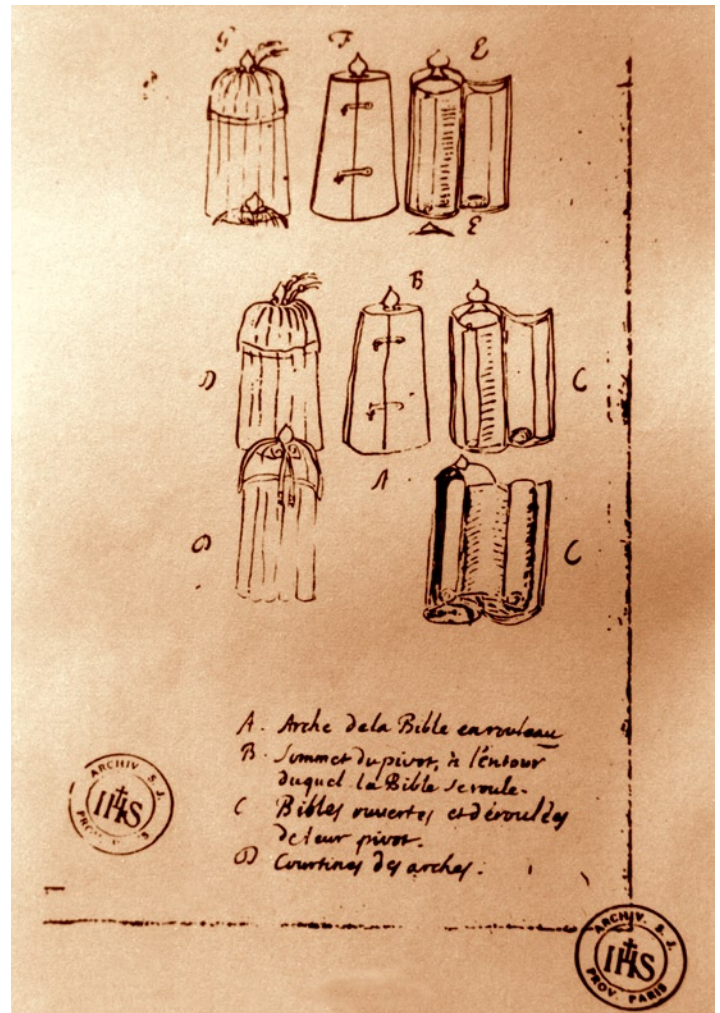 G F E
E
B
D C
A
D C
A. Arche dela Bible enrouleau
B. Sommet du pivot, à l'entour
duquel la Bible se roule.
C Bibles ouvertes et déroulées
de leur pivot.
D Courtines des arches.
ARCHIV S. J.
IHS
PROV. P
ARCHIV. S. J.
IHS
PROV. PARIS